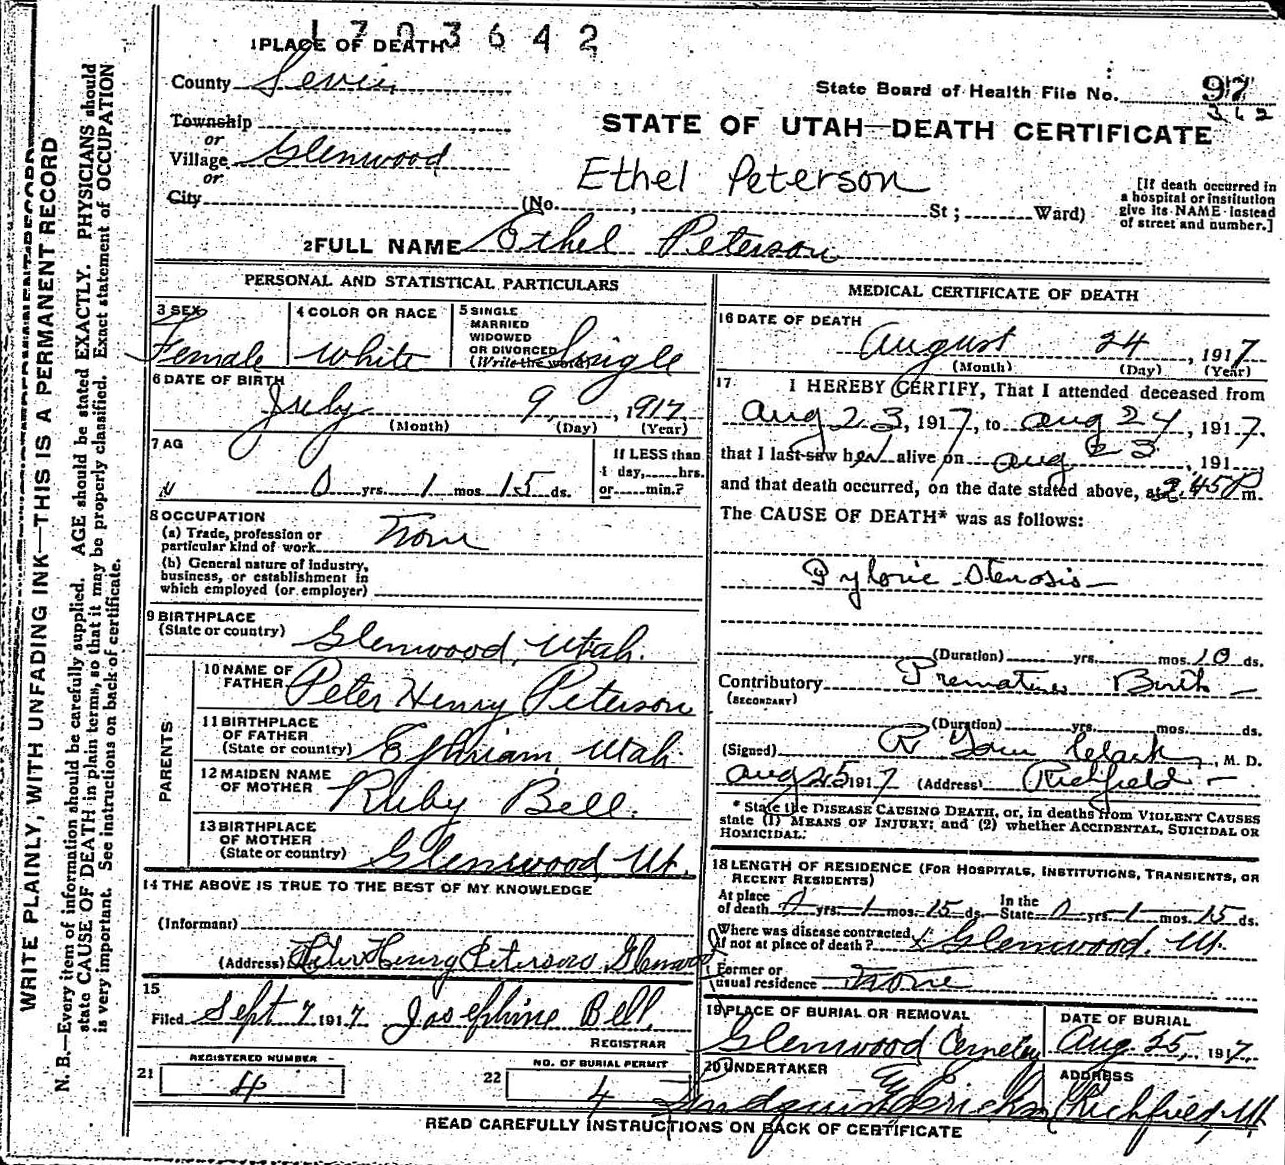 1703642
1 PLACE OF DEATH
County Sevier
State Board of Health File No. 97
362
Township
or
Village Glenwood
or
City
STATE OF UTAH—DEATH CERTIFICATE
Ethel Peterson
(No. , St ; Ward)
[If death occurred in
a hospital or institution
give its NAME instead
of street and number.]
2 FULL NAME Ethel Peterson
PERSONAL AND STATISTICAL PARTICULARS
3 SEX
Female
4 COLOR OR RACE
White
5 SINGLE
MARRIED
WIDOWED
OR DIVORCED
(Write the word) Single
6 DATE OF BIRTH
July 9, 1917
(Month) (Day) (Year)
7 AG
0 yrs. 1 mos. 15 ds.
If LESS than
1 day, hrs.
or min.?
8 OCCUPATION
(a) Trade, profession or
particular kind of work None
(b) General nature of Industry,
business, or establishment in
which employed (or employer)
9 BIRTHPLACE
(State or country) Glenwood, Utah.
PARENTS
10 NAME OF
FATHER Peter Henry Peterson
11 BIRTHPLACE
OF FATHER
(State or country) Ephriam, Utah
12 MAIDEN NAME
OF MOTHER Ruby Bell.
13 BIRTHPLACE
OF MOTHER
(State or country) Glenwood, Ut.
14 THE ABOVE IS TRUE TO THE BEST OF MY KNOWLEDGE
(Informant)
(Address) Peter Henry Peterson, Glenwood
15
Filed Sept 7 1917 Josephine Bell,
REGISTRAR
21 REGISTERED NUMBER
4
22 NO. OF BURIAL PERMIT
4
MEDICAL CERTIFICATE OF DEATH
16 DATE OF DEATH
August 24, 1917
(Month) (Day) (Year)
17 I HEREBY CERTIFY, That I attended deceased from
Aug 23, 1917, to Aug 24, 1917.
that I last saw her alive on Aug 23, 191
and that death occurred, on the date stated above, at 2.45 P m.
The CAUSE OF DEATH* was as follows:
Pyloric Stenosis
(Duration) yrs. mos. 10 ds.
Contributory Premature Birth
(SECONDARY)
(Duration) yrs. mos. ds.
(Signed) R Clark, M. D.
Aug 25 1917 (Address) Richfield
* State the DISEASE CAUSING DEATH, or, in deaths from VIOLENT CAUSES
state (1) MEANS OF INJURY; and (2) whether ACCIDENTAL, SUICIDAL OR
HOMICIDAL.
18 LENGTH OF RESIDENCE (FOR HOSPITALS, INSTITUTIONS, TRANSIENTS, OR
RECENT RESIDENTS)
At place
of death 0 yrs. 1 mos. 15 ds.
In the
State 0 yrs. 1 mos. 15 ds.
Where was disease contracted
if not at place of death? Glenwood, Ut.
Former or
usual residence None
19 PLACE OF BURIAL OR REMOVAL
Glenwood Cemetery
DATE OF BURIAL
Aug 25, 1917.
20 UNDERTAKER
ADDRESS
Richfield, Ut
READ CAREFULLY INSTRUCTIONS ON BACK OF CERTIFICATE
WRITE PLAINLY, WITH UNFADING INK—THIS IS A PERMANENT RECORD
N. B.—Every item of information should be carefully supplied. AGE should be stated EXACTLY. PHYSICIANS should
state CAUSE OF DEATH in plain terms, so that it may be properly classified. Exact statement of OCCUPATION
is very important. See instructions on back of certificate.